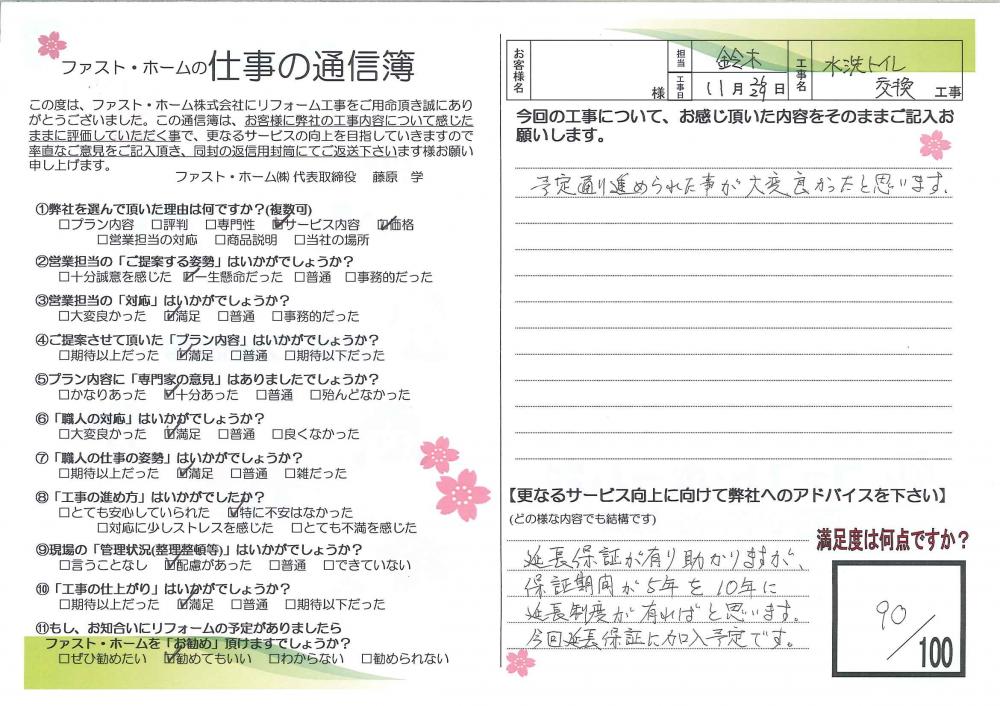 ファスト・ホームの仕事の通信簿
この度は、ファスト・ホーム株式会社にリフォーム工事をご用命頂き誠にあり
がとうございました。この通信簿は、お客様に弊社の工事内容について感じた
ままに評価していただく事で、更なるサービスの向上を目指していきますので
率直なご意見をご記入頂き、同封の返信用封筒にてご返送下さいます様お願い
申し上げます。
ファスト・ホーム㈱ 代表取締役 藤原 学
①弊社を選んで頂いた理由は何ですか?(複数可)
□プラン内容 □評判 □専門性 ☑サービス内容 ☑価格
□営業担当の対応 □商品説明 □当社の場所
②営業担当の「ご提案する姿勢」はいかがでしょうか?
□十分誠意を感じた ☑一生懸命だった □普通 □事務的だった
③営業担当の「対応」はいかがでしょうか?
□大変良かった ☑満足 □普通 □事務的だった
④ご提案させて頂いた「プラン内容」はいかがでしょうか?
□期待以上だった ☑満足 □普通 □期待以下だった
⑤プラン内容に「専門家の意見」はありましたでしょうか?
□かなりあった ☑十分あった □普通 □殆んどなかった
⑥「職人の対応」はいかがでしょうか?
□大変良かった ☑満足 □普通 □良くなかった
⑦「職人の仕事の姿勢」はいかがでしょうか?
□期待以上だった ☑満足 □普通 □雑だった
⑧「工事の進め方」はいかがでしたか?
□とても安心していられた ☑特に不安はなかった
□対応に少しストレスを感じた □とても不満を感じた
⑨現場の「管理状況(整理整頓等)」はいかがでしょうか?
□言うことなし ☑配慮があった □普通 □できていない
⑩「工事の仕上がり」はいかがでしょうか?
□期待以上だった ☑満足 □普通 □期待以下だった
⑪もし、お知合いにリフォームの予定がありましたら
ファスト・ホームを「お勧め」頂けますでしょうか?
□ぜひ勧めたい ☑勧めてもいい □わからない □勧められない
お客様名 様 担当 鈴木 工事名 水洗トイレ
工事日 11月 日 交換 工事
今回の工事について、お感じ頂いた内容をそのままご記入お
願いします。
予定通り進められた事が大変良かったと思います。
【更なるサービス向上に向けて弊社へのアドバイスを下さい】
(どの様な内容でも結構です)
満足度は何点ですか?
延長保証が有り助かりますが、
保証期間が5年を10年に
延長制度が有ればと思います。
今回延長保証に加入予定です。
90/100